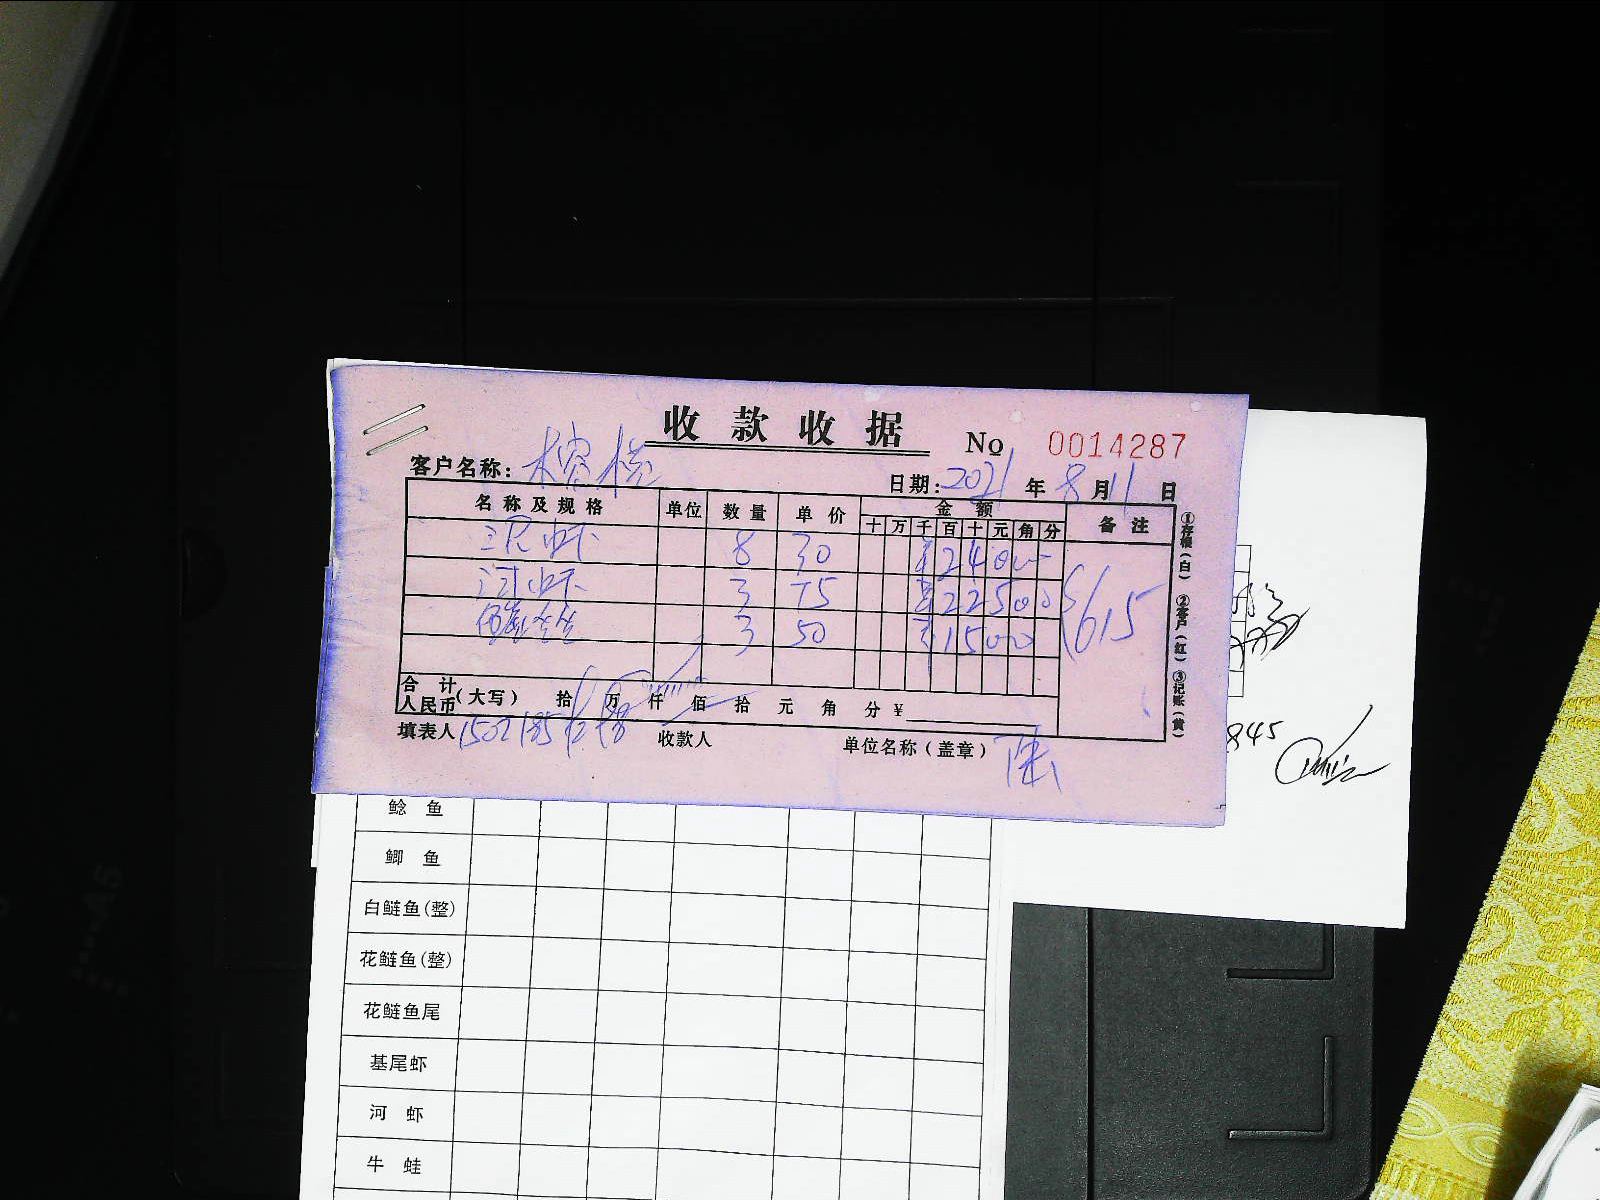 收款收据
No 0014287
客户名称：榕桥
日期：2021年8月11日
名称及规格 单位 数量 单价 金额 备注
十 万 千 百 十 元 角 分
沼虾 8 30 ¥24000
河虾 3 75 ¥22500 615
3 50 ¥15000
合计
人民币（大写） 拾 万 仟 佰 拾 元 角 分 ¥
填表人 收款人 单位名称（盖章） 陆
①存根（白） ②客户（红） ③记账（黄）
845
鲶鱼
鲫鱼
白鲢鱼(整)
花鲢鱼(整)
花鲢鱼尾
基尾虾
河虾
牛蛙